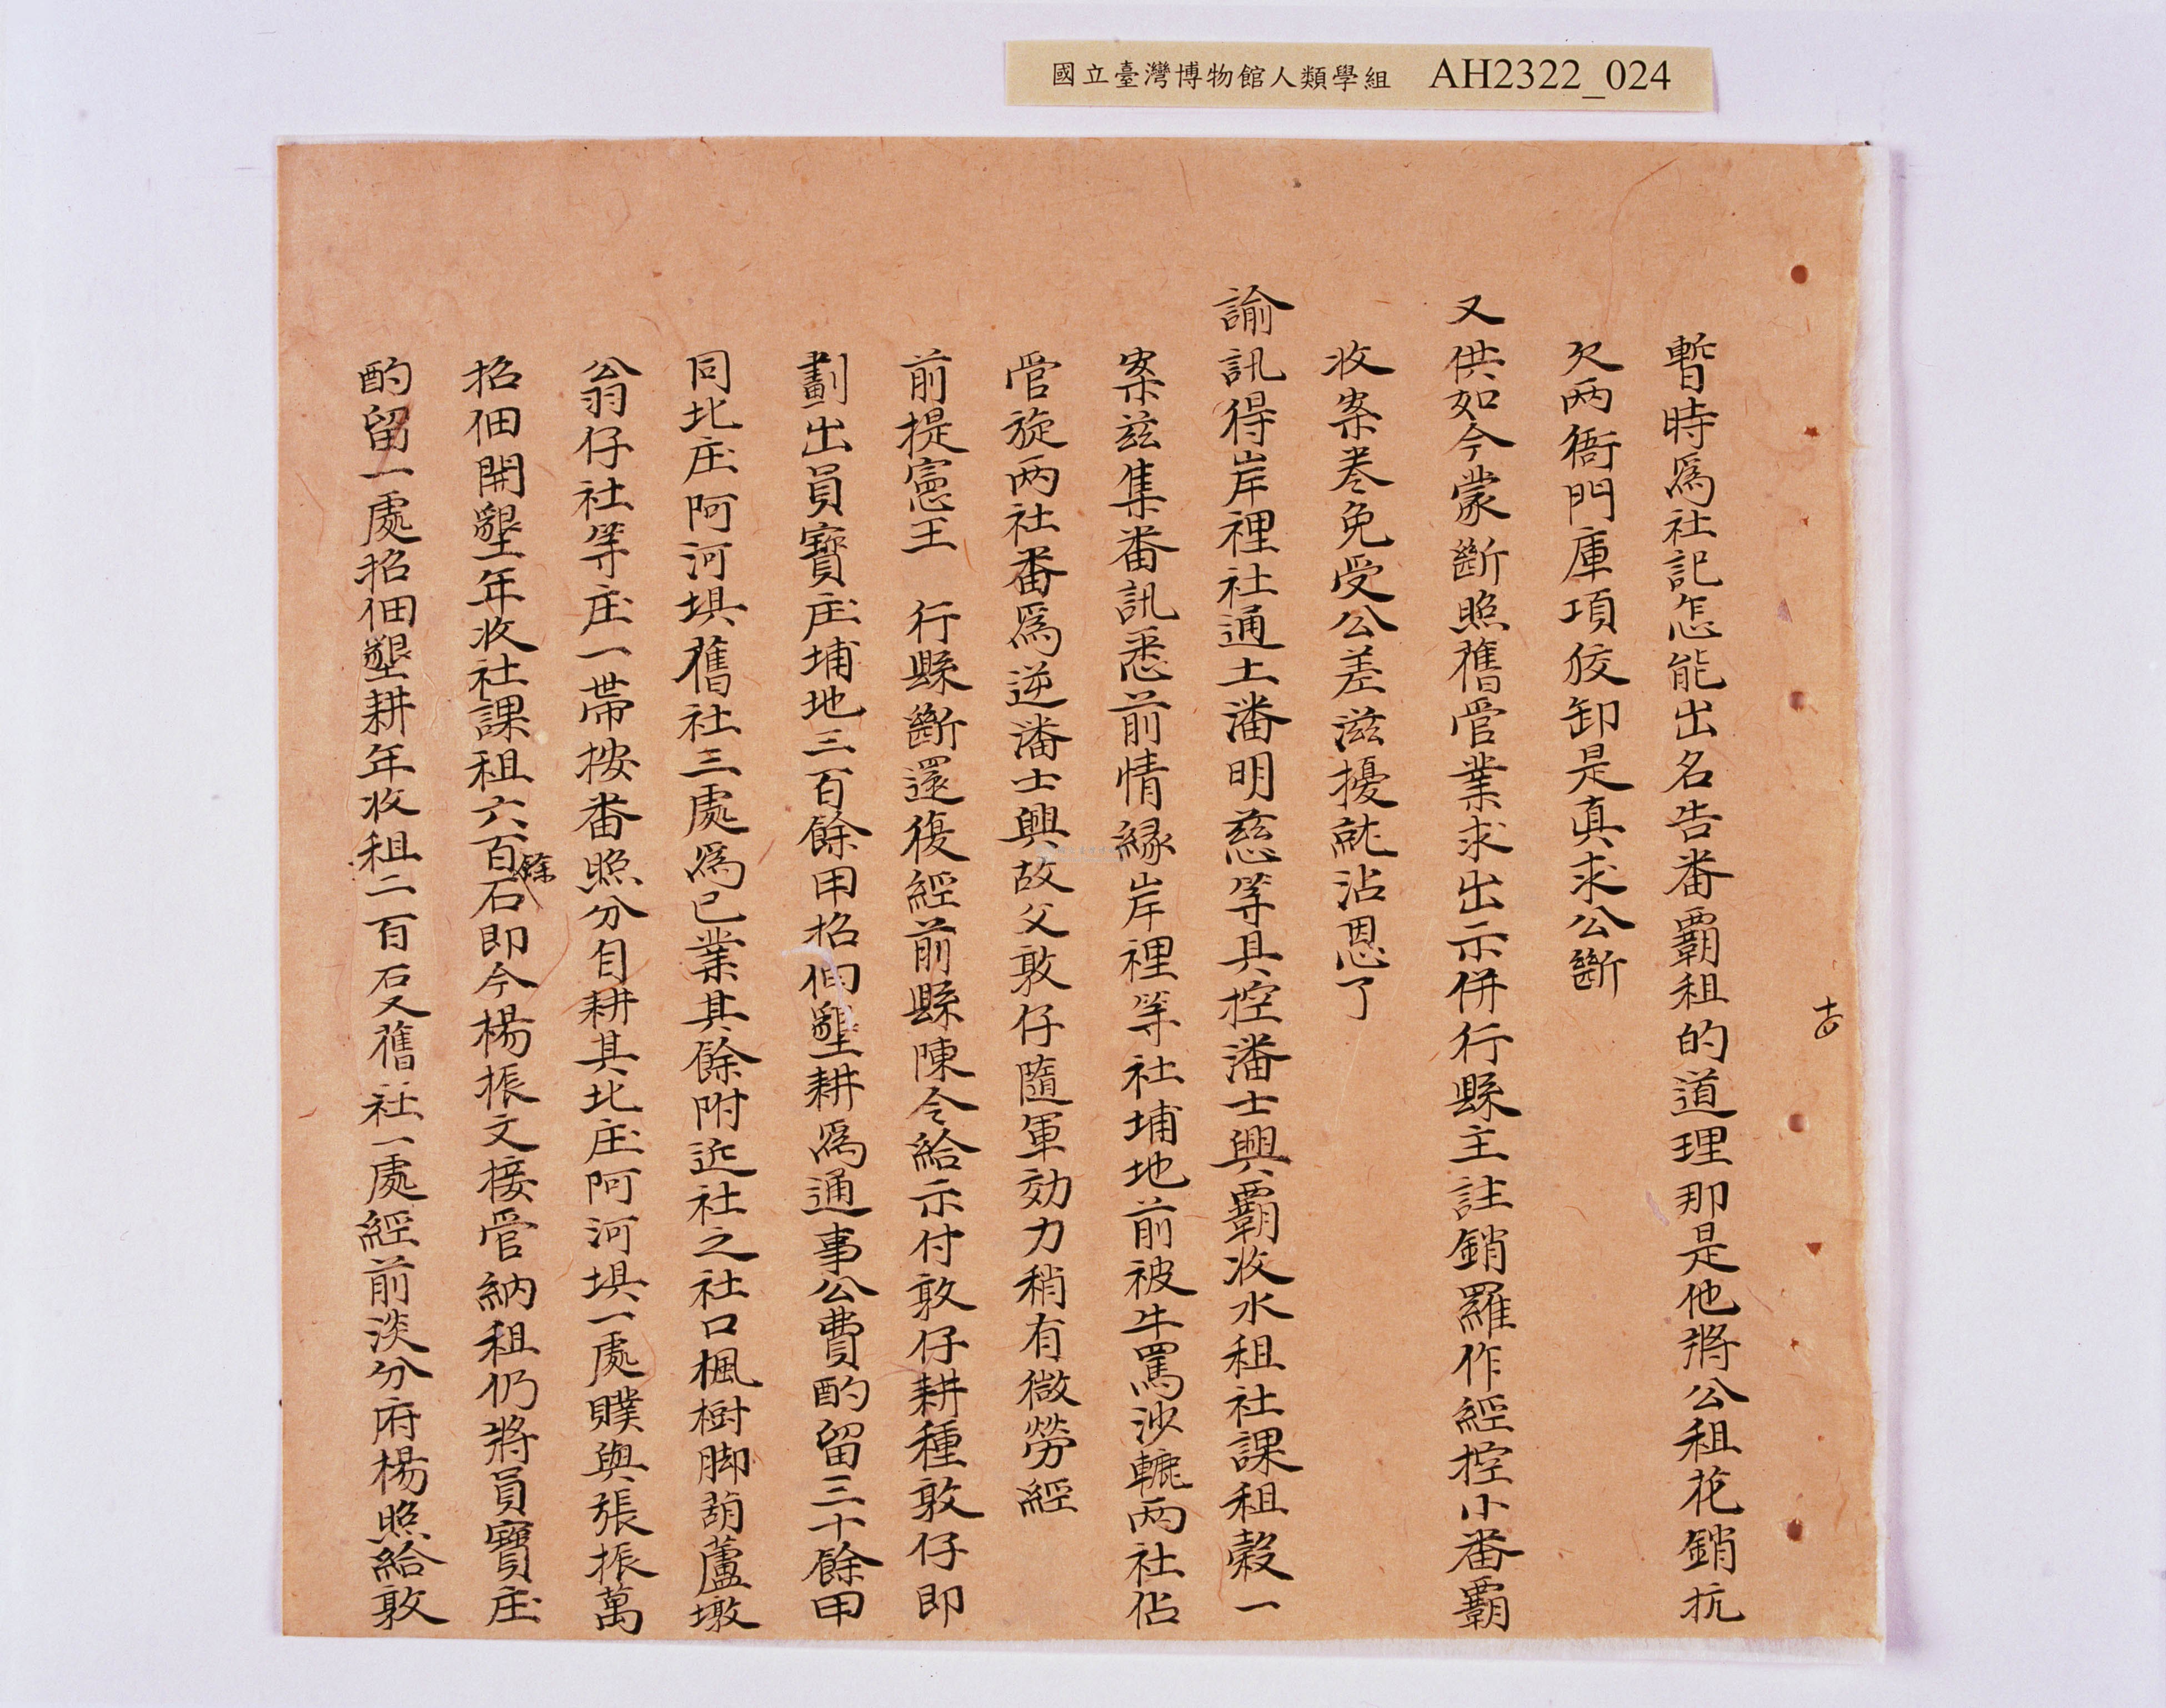 國立臺灣博物館人類學組 AH2322_024
暫時為社記怎能出名告番霸租的道理那是他將公租花銷抗
欠两衙門庫項佼卸是真求公斷
又供如今蒙斷照舊管業求出示併行縣主註銷羅作經控小番霸
收案卷免受公差滋擾就沾恩了
諭訊得岸裡社通土潘明慈等具控潘士興霸收水租社課租穀一
案兹集番訊悉前情緣岸裡等社埔地前被牛罵沙轆两社佔
管旋两社番為逆潘士興故父敦仔隨軍効力稍有微勞經
前提憲王 行縣斷還復經前縣陳令給示付敦仔耕種敦仔即
劃出員寶庄埔地三百餘甲招佃墾耕為通事公費酌留三十餘甲
同北庄阿河埧舊社三處為己業其餘附近社之社口楓樹脚葫蘆墩
翁仔社等庄一帶按番照分自耕其北庄阿河埧一處贌與張振萬
招佃開墾年收社課租六百餘石即今楊振文接管納租仍將員寶庄
酌留一處招佃墾耕年收租二百石又舊社一處經前淡分府楊照給敦